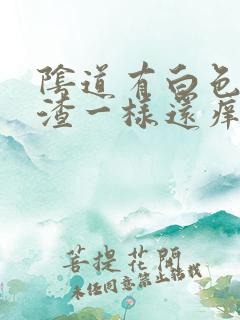 陰道有白色
渣一樣還癢
菩提花開
未经同意禁止转载